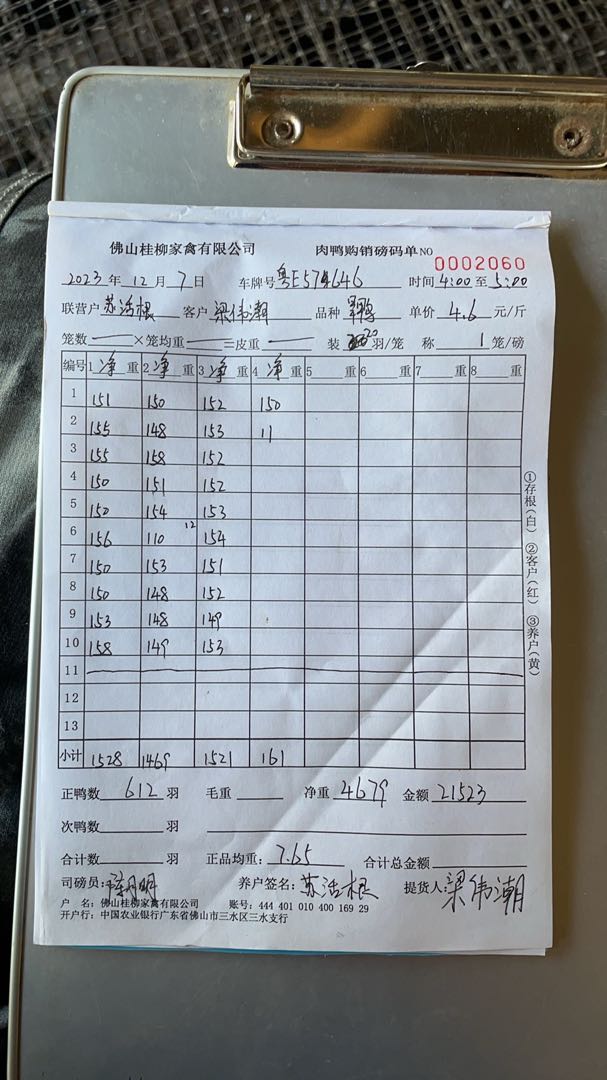 佛山桂柳家禽有限公司 肉鸭购销磅码单 NO 0002060
2023 年 12 月 7 日 车牌号 粤E574646 时间 4:00 至 5:00
联营户 苏活根 客户 梁伟潮 品种 单价 4.6 元/斤
笼数 — ×笼均重 — =皮重 — 装 20 羽/笼 称 1 笼/磅
编号 1 净 重 2 净 重 3 净 重 4 净 重 5 重 6 重 7 重 8 重
1 151 150 152 150
2 155 148 153 11
3 155 158 152
4 150 151 152
5 150 154 153
6 156 110 12 154
7 150 153 151
8 150 148 152
9 153 148 149
10 158 149 153
11
12
13
小计 1528 1469 1521 161
①存根(白) ②客户(红) ③养户(黄)
正鸭数 612 羽 毛重 净重 4679 金额 21523
次鸭数 羽
合计数 羽 正品均重: 7.65 合计总金额
司磅员: 养户签名: 苏活根 提货人: 梁伟潮
户 名: 佛山桂柳家禽有限公司 账号: 444 401 010 400 169 29
开户行: 中国农业银行广东省佛山市三水区三水支行